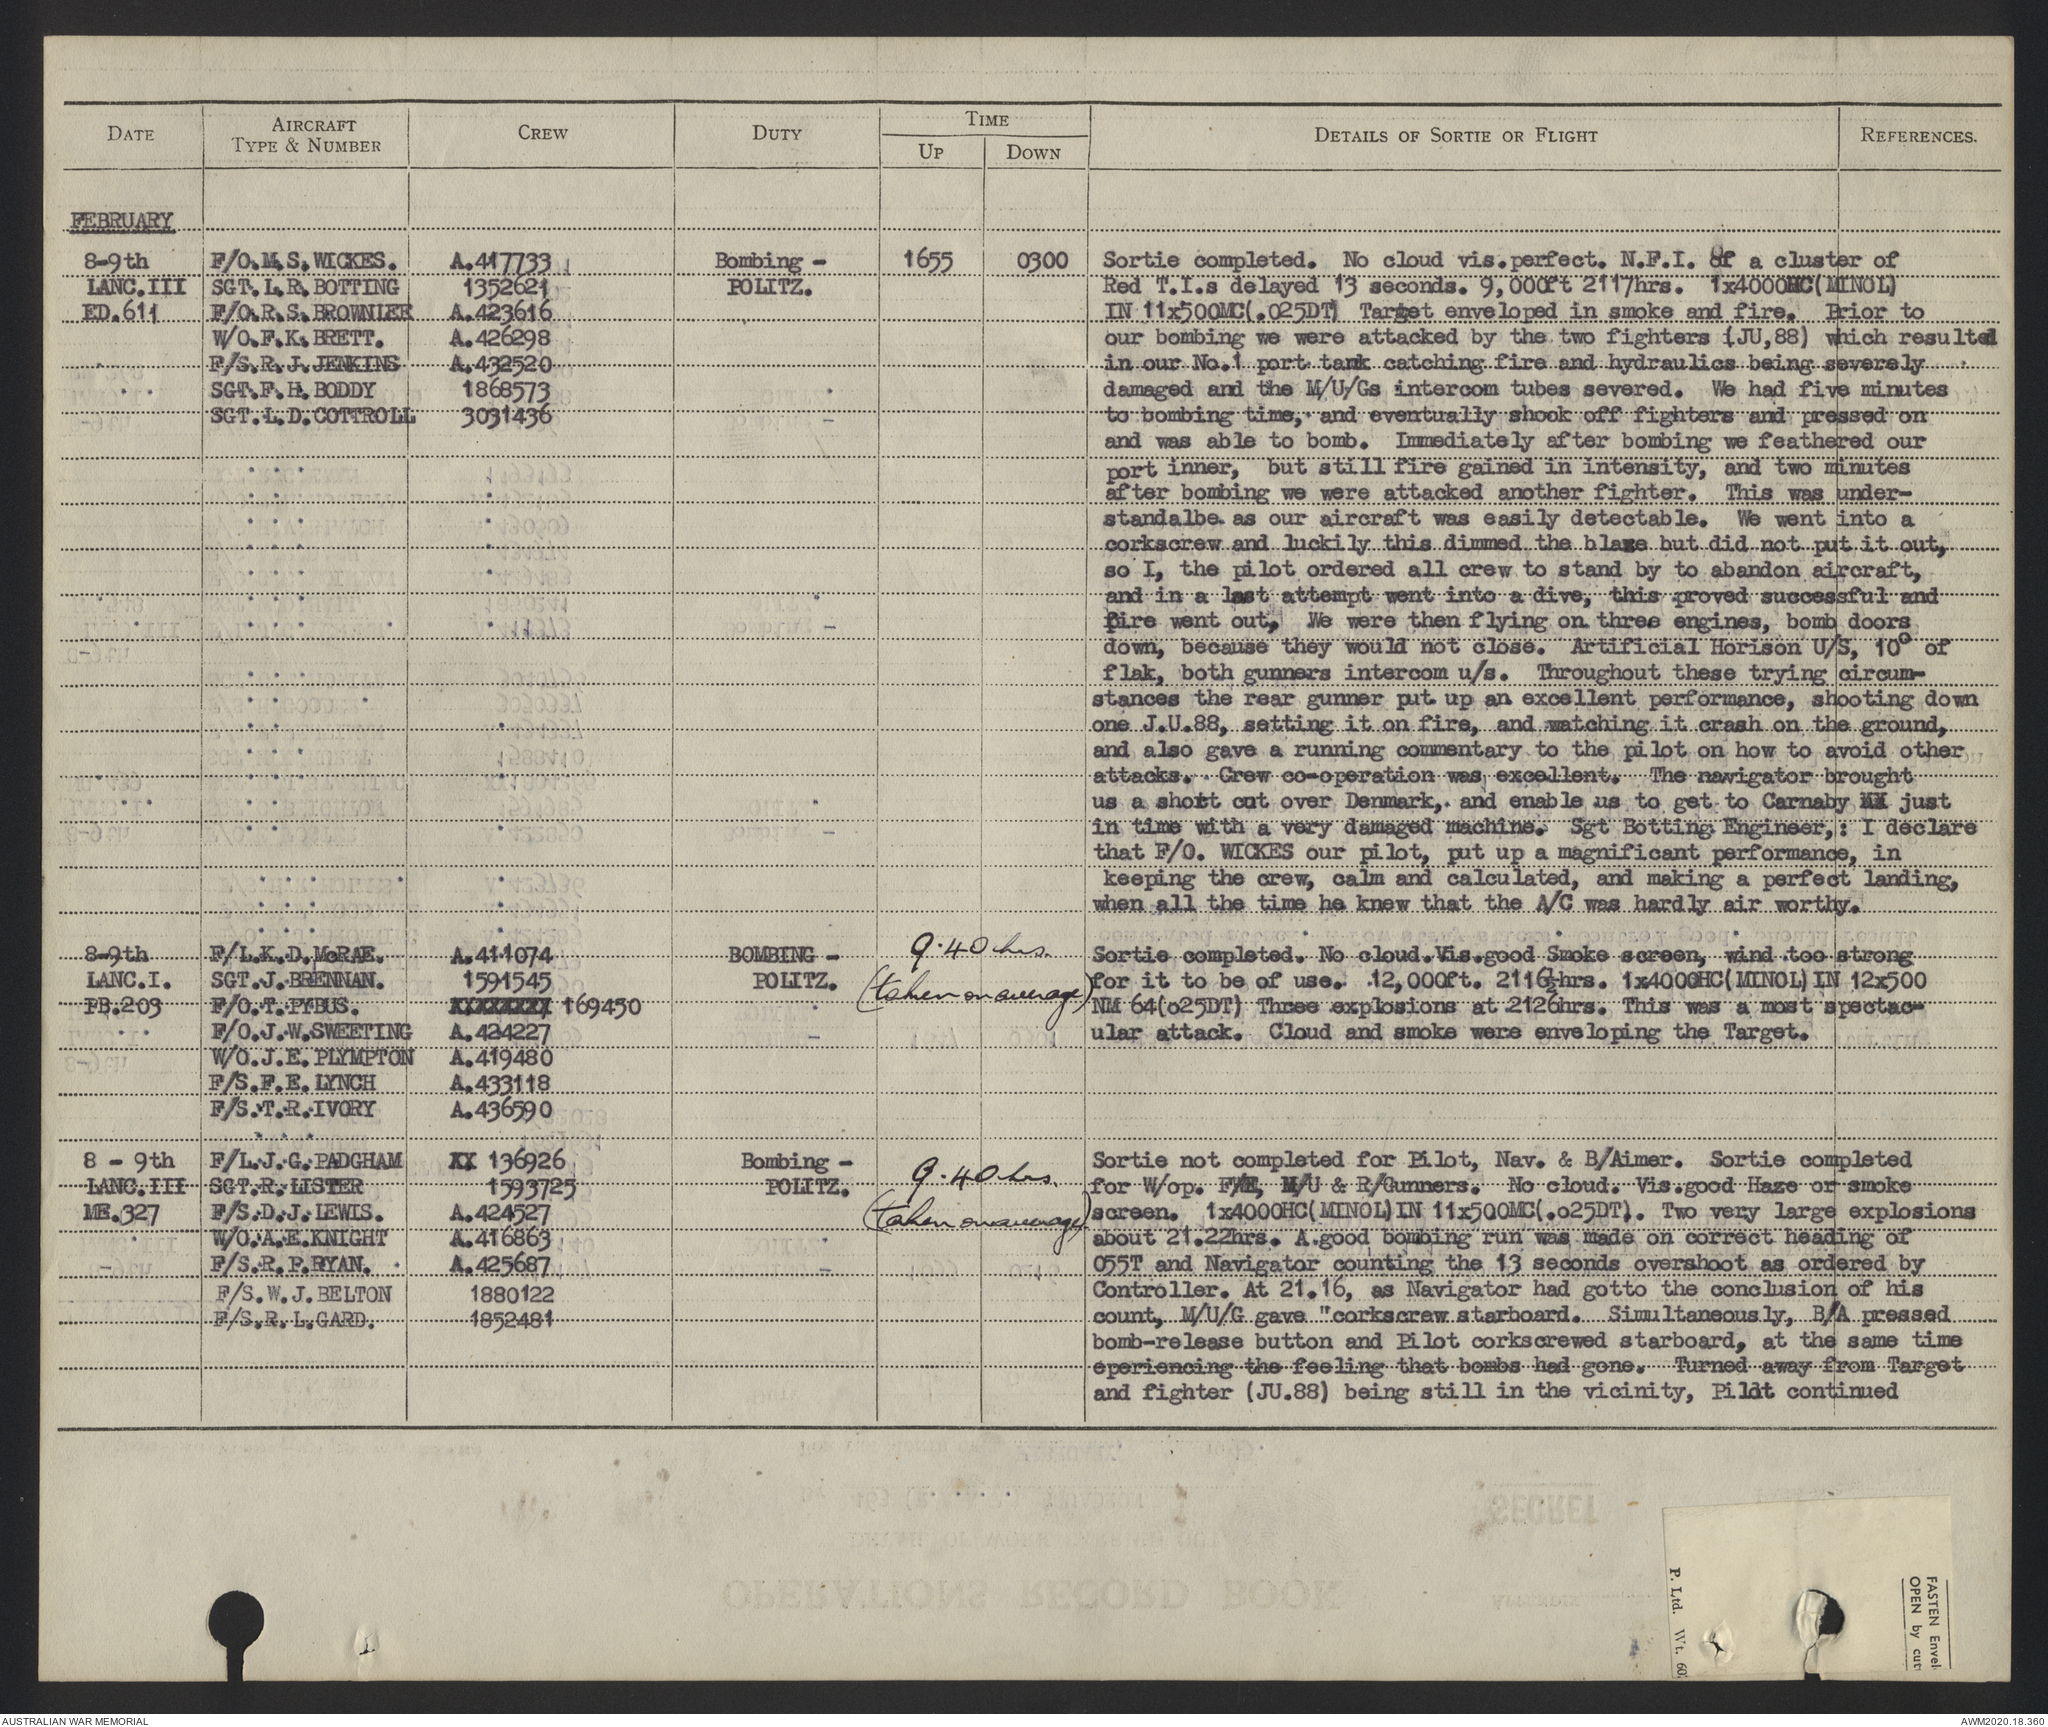 DATE AIRCRAFT TYPE & NUMBER CREW DUTY TIME UP DOWN DETAILS OF SORTIE OR FLIGHT REFERENCES.
FEBRUARY
8-9th F/O.M.S.WICKES. A.417733 Bombing - 1655 0300 Sortie completed. No cloud vis.perfect. N.F.I. Of a cluster of
LANC.III SGT.L.R.BOTTING 1352621 POLITZ. Red T.I.s delayed 13 seconds. 9,000ft 2117hrs. 1x4000HC(MINOL)
ED.611 F/O.R.S.BROWNLEE A.423616 IN 11x500MC(.025DT) Target enveloped in smoke and fire. Prior to
W/O.F.K.BRETT. A.426298 our bombing we were attacked by the two fighters (JU,88) which resulted
F/S.R.J.JENKINS A.432520 in our No.1 port tank catching fire and hydraulics being severely
SGT.F.H.BODDY 1868573 damaged and the M/U/Gs intercom tubes severed. We had five minutes
SGT.L.D.COTTROLL 3031436 to bombing time, and eventually shook off fighters and pressed on
and was able to bomb. Immediately after bombing we feathered our
port inner, but still fire gained in intensity, and two minutes
after bombing we were attacked another fighter. This was under-
standalbe as our aircraft was easily detectable. We went into a
corkscrew and luckily this dimmed the blaze but did not put it out,
so I, the pilot ordered all crew to stand by to abandon aircraft,
and in a last attempt went into a dive, this proved successful and
fire went out, We were then flying on three engines, bomb doors
down, because they would not close. Artificial Horison U/S, 10° of
flak, both gunners intercom u/s. Throughout these trying circum-
stances the rear gunner put up an excellent performance, shooting down
one J.U.88, setting it on fire, and watching it crash on the ground,
and also gave a running commentary to the pilot on how to avoid other
attacks. Crew co-operation was excellent. The navigator brought
us a short cut over Denmark, and enable us to get to Carnaby XX just
in time with a very damaged machine. Sgt Botting Engineer,: I declare
that F/O. WICKES our pilot, put up a magnificant performance, in
keeping the crew, calm and calculated, and making a perfect landing,
when all the time he knew that the A/C was hardly air worthy.
8-9th F/L.K.D.McRAE. A.411074 BOMBING - 9.40 hrs. Sortie completed. No cloud.Vis.good Smoke screen, wind too strong
LANC.I. SGT.J.BRENNAN. 1591545 POLITZ. (taken on average) for it to be of use. 12,000ft. 2116½hrs. 1x4000HC(MINOL)IN 12x500
PB.203 F/O.T.PYBUS. XXXXXXXX 169450 NM 64(o25DT) Three explosions at 2126hrs. This was a most spectac-
F/O.J.W.SWEETING A.424227 ular attack. Cloud and smoke were enveloping the Target.
W/O.J.E.PLYMPTON A.419480
F/S.F.E.LYNCH A.433118
F/S.T.R.IVORY A.436590
8 - 9th F/L.J.G.PADGHAM XX 136926 Bombing - 9.40 hrs. Sortie not completed for Pilot, Nav. & B/Aimer. Sortie completed
LANC.III SGT.R.LISTER 1593725 POLITZ. for W/op. F/E, M/U & R/Gunners. No cloud. Vis.good Haze or smoke
ME.327 F/S.D.J.LEWIS. A.424527 (taken on average) screen. 1x4000HC(MINOL)IN 11x500MC(.o25DT). Two very large explosions
W/O.A.E.KNIGHT A.416863 about 21.22hrs. A good bombing run was made on correct heading of
F/S.R.P.RYAN. A.425687 055T and Navigator counting the 13 seconds overshoot as ordered by
F/S.W.J.BELTON 1880122 Controller. At 21.16, as Navigator had gotto the conclusion of his
F/S.R.L.GARD. 1852481 count, M/U/G gave "corkscrew starboard. Simultaneously, B/A pressed
bomb-release button and Pilot corkscrewed starboard, at the same time
eperiencing the feeling that bombs had gone. Turned away from Target
and fighter (JU.88) being still in the vicinity, Pilot continued
SECRET
OPERATIONS RECORD BOOK
P. Ltd. Wt. 60
FASTEN Envel
OPEN by cut
AUSTRALIAN WAR MEMORIAL
AWM2020.18.360